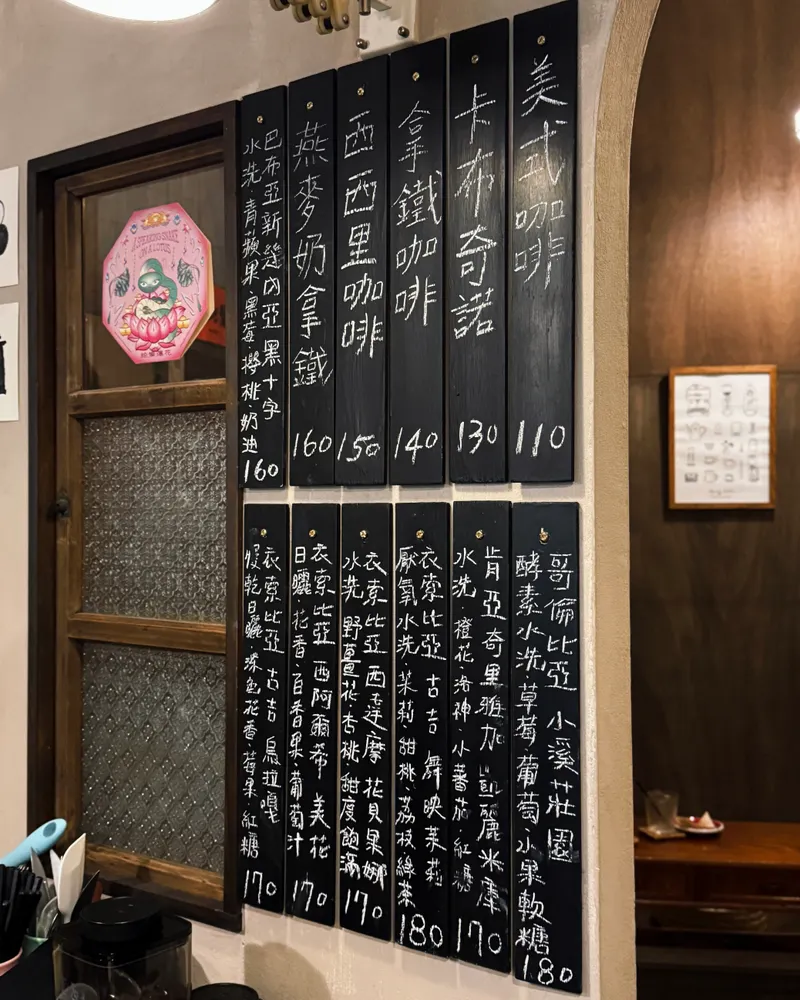 美式咖啡
110
卡布奇諾
130
拿鐵咖啡
140
西西里咖啡
150
燕麥奶拿鐵
160
巴布亞新幾內亞 黑十字
水洗 青蘋果·黑莓·櫻桃·奶油
160
哥倫比亞 小溪莊園
酵素水洗·草莓·葡萄·水果軟糖
180
肯亞奇里雅加 凱麗米庫
水洗·橙花·洛神·小蕃茄·紅糖
170
衣索比亞 古吉 舞映茉莉
厭氧水洗·茉莉·甜桃·荔枝·綠茶
180
衣索比亞 西達摩 花貝果娜
水洗 野薑花·杏桃·甜度飽滿
170
衣索比亞 西阿爾希 美花
日曬 花香·百香果·葡萄汁
170
衣索比亞 古吉 烏拉嘎
慢乾日曬·深色花香·莓果·紅糖
170
SPEAKING SNAKE
IN A LOTUS